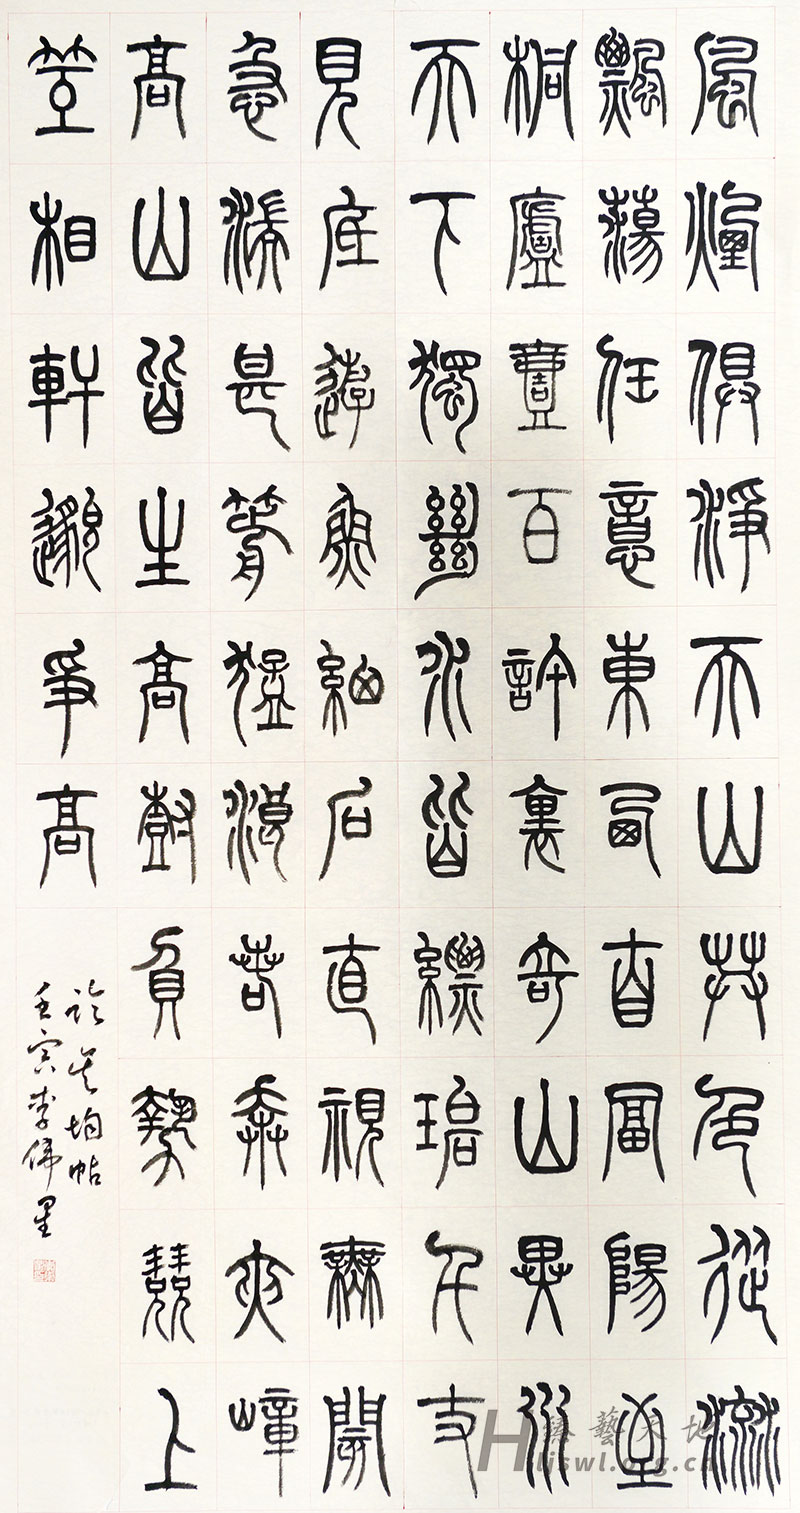 風煙俱淨天山共色從流
飄蕩任意東西自富陽至
桐廬壹百許裏奇山異水
天下獨絕水皆縹碧千丈
見底遊魚細石直視無
急湍甚箭猛浪若奔夾嶂
高山皆生高樹負勢競上
互相軒邈爭高
吳均帖
壬寅李偉星
藝天地
Hljswl.org.cn